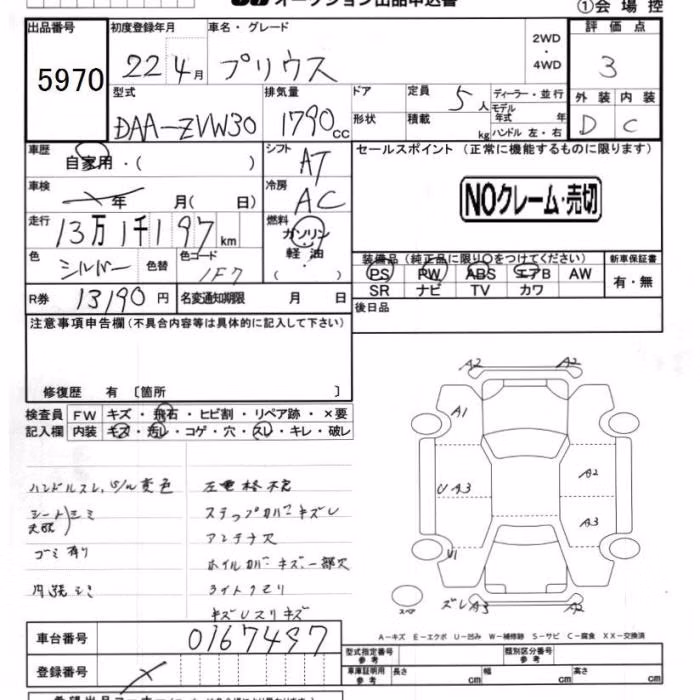 オークション出品申込書 ①会場控
出品番号 初度登録年月 車名・グレード 2WD ・ 4WD 評価点
5970 22 4月 プリウス 3
型式 排気量 ドア 定員 5人 ディーラー・並行 外装 内装
DAA-ZVW30 1790cc 形状 積載 kg モデル年式 年 ハンドル 左・右 D C
車歴 自家用・( ) シフト AT セールスポイント (正常に機能するものに限ります)
車検 年 月( 日) 冷房 AC NOクレーム・売切
走行 13万1千197km 燃料 ガソリン 軽油 ( )
色 シルバー 色替 色コード 1F7 装備品 (純正品に限り○をつけてください) 新車保証書
PS PW ABS エアB AW 有・無
SR ナビ TV カワ
R券 13190円 名変通知期限 月 日 後日品
注意事項申告欄(不具合内容等は具体的に記入して下さい)
修復歴 有 〔箇所 〕
検査員 FW キズ・飛石・ヒビ割・リペア跡・×要
記入欄 内装 キズ・汚レ・コゲ・穴・スレ・キレ・破レ
ハンドルスレ、 変色 左電格不良
シート シミ ステップカバーキズレ
アンテナ欠
ゴミ有り ホイルカバーキズ・一部欠
内張シミ ライトクモリ
キズUスリキズ
A2 A2
A1
A2
U A3
A3
U1
スペア ズレA3 A2
A-キズ E-エクボ U-凹み W-補修跡 S-サビ C-腐食 XX-交換済
車台番号 0167497
型式指定番号 参考 類別区分番号 参考
登録番号 車庫証明用 参考 長さ cm 幅 cm 高さ cm